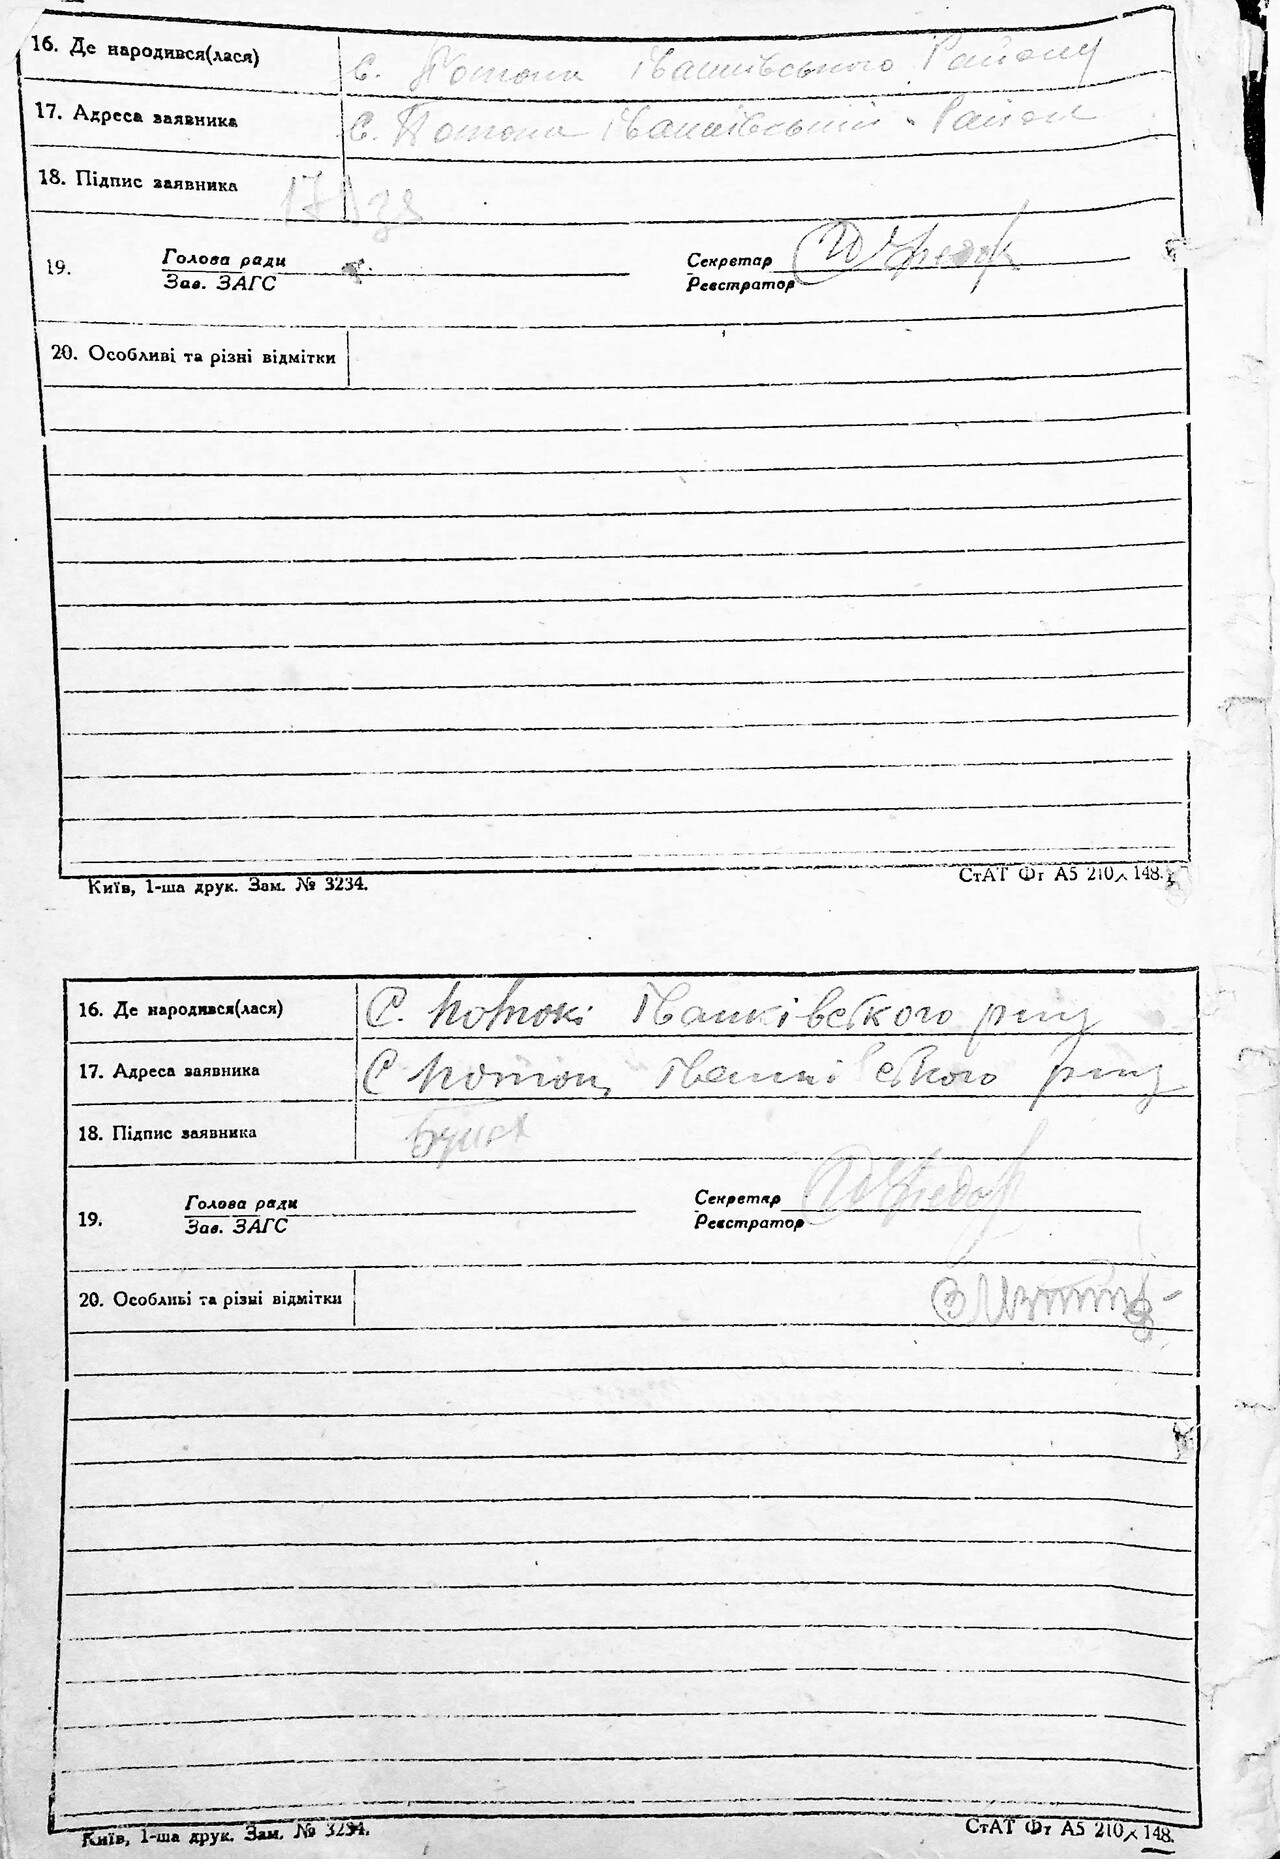 16. Де народився(лася) С. Потоки Іванківського Району
17. Адреса заявника С. Потоки Іванківський Район
18. Підпис заявника
19. Голова ради Секретар
Зав. ЗАГС Реєстратор
20. Особливі та різні відмітки
Київ, 1-ша друк. Зам. № 3234. СтАТ Фт А5 210×148.
16. Де народився(лася) С. Потокі Іванківського р-ну
17. Адреса заявника С Потоки Іванківського р-ну
18. Підпис заявника
19. Голова ради Секретар
Зав. ЗАГС Реєстратор
20. Особливі та різні відмітки
Київ, 1-ша друк. Зам. № 3234. СтАТ Фт А5 210×148.